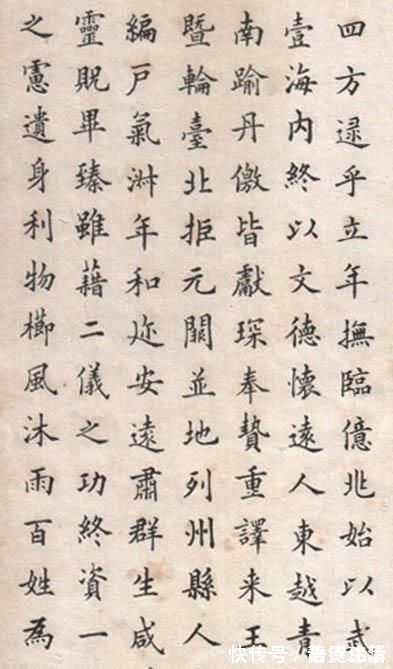 四方逯乎立年撫臨億兆始以武
壹海內終以文德懷遠人東越青
南踰丹儌皆獻琛奉贄重譯来王
暨輪臺北拒元闕並地列州縣人
編戸氣淋年和迩安遠肅群生咸
靈貺畢臻雖藉二儀之功終資一
之慮遺身利物櫛風沐雨百姓為
快传号/